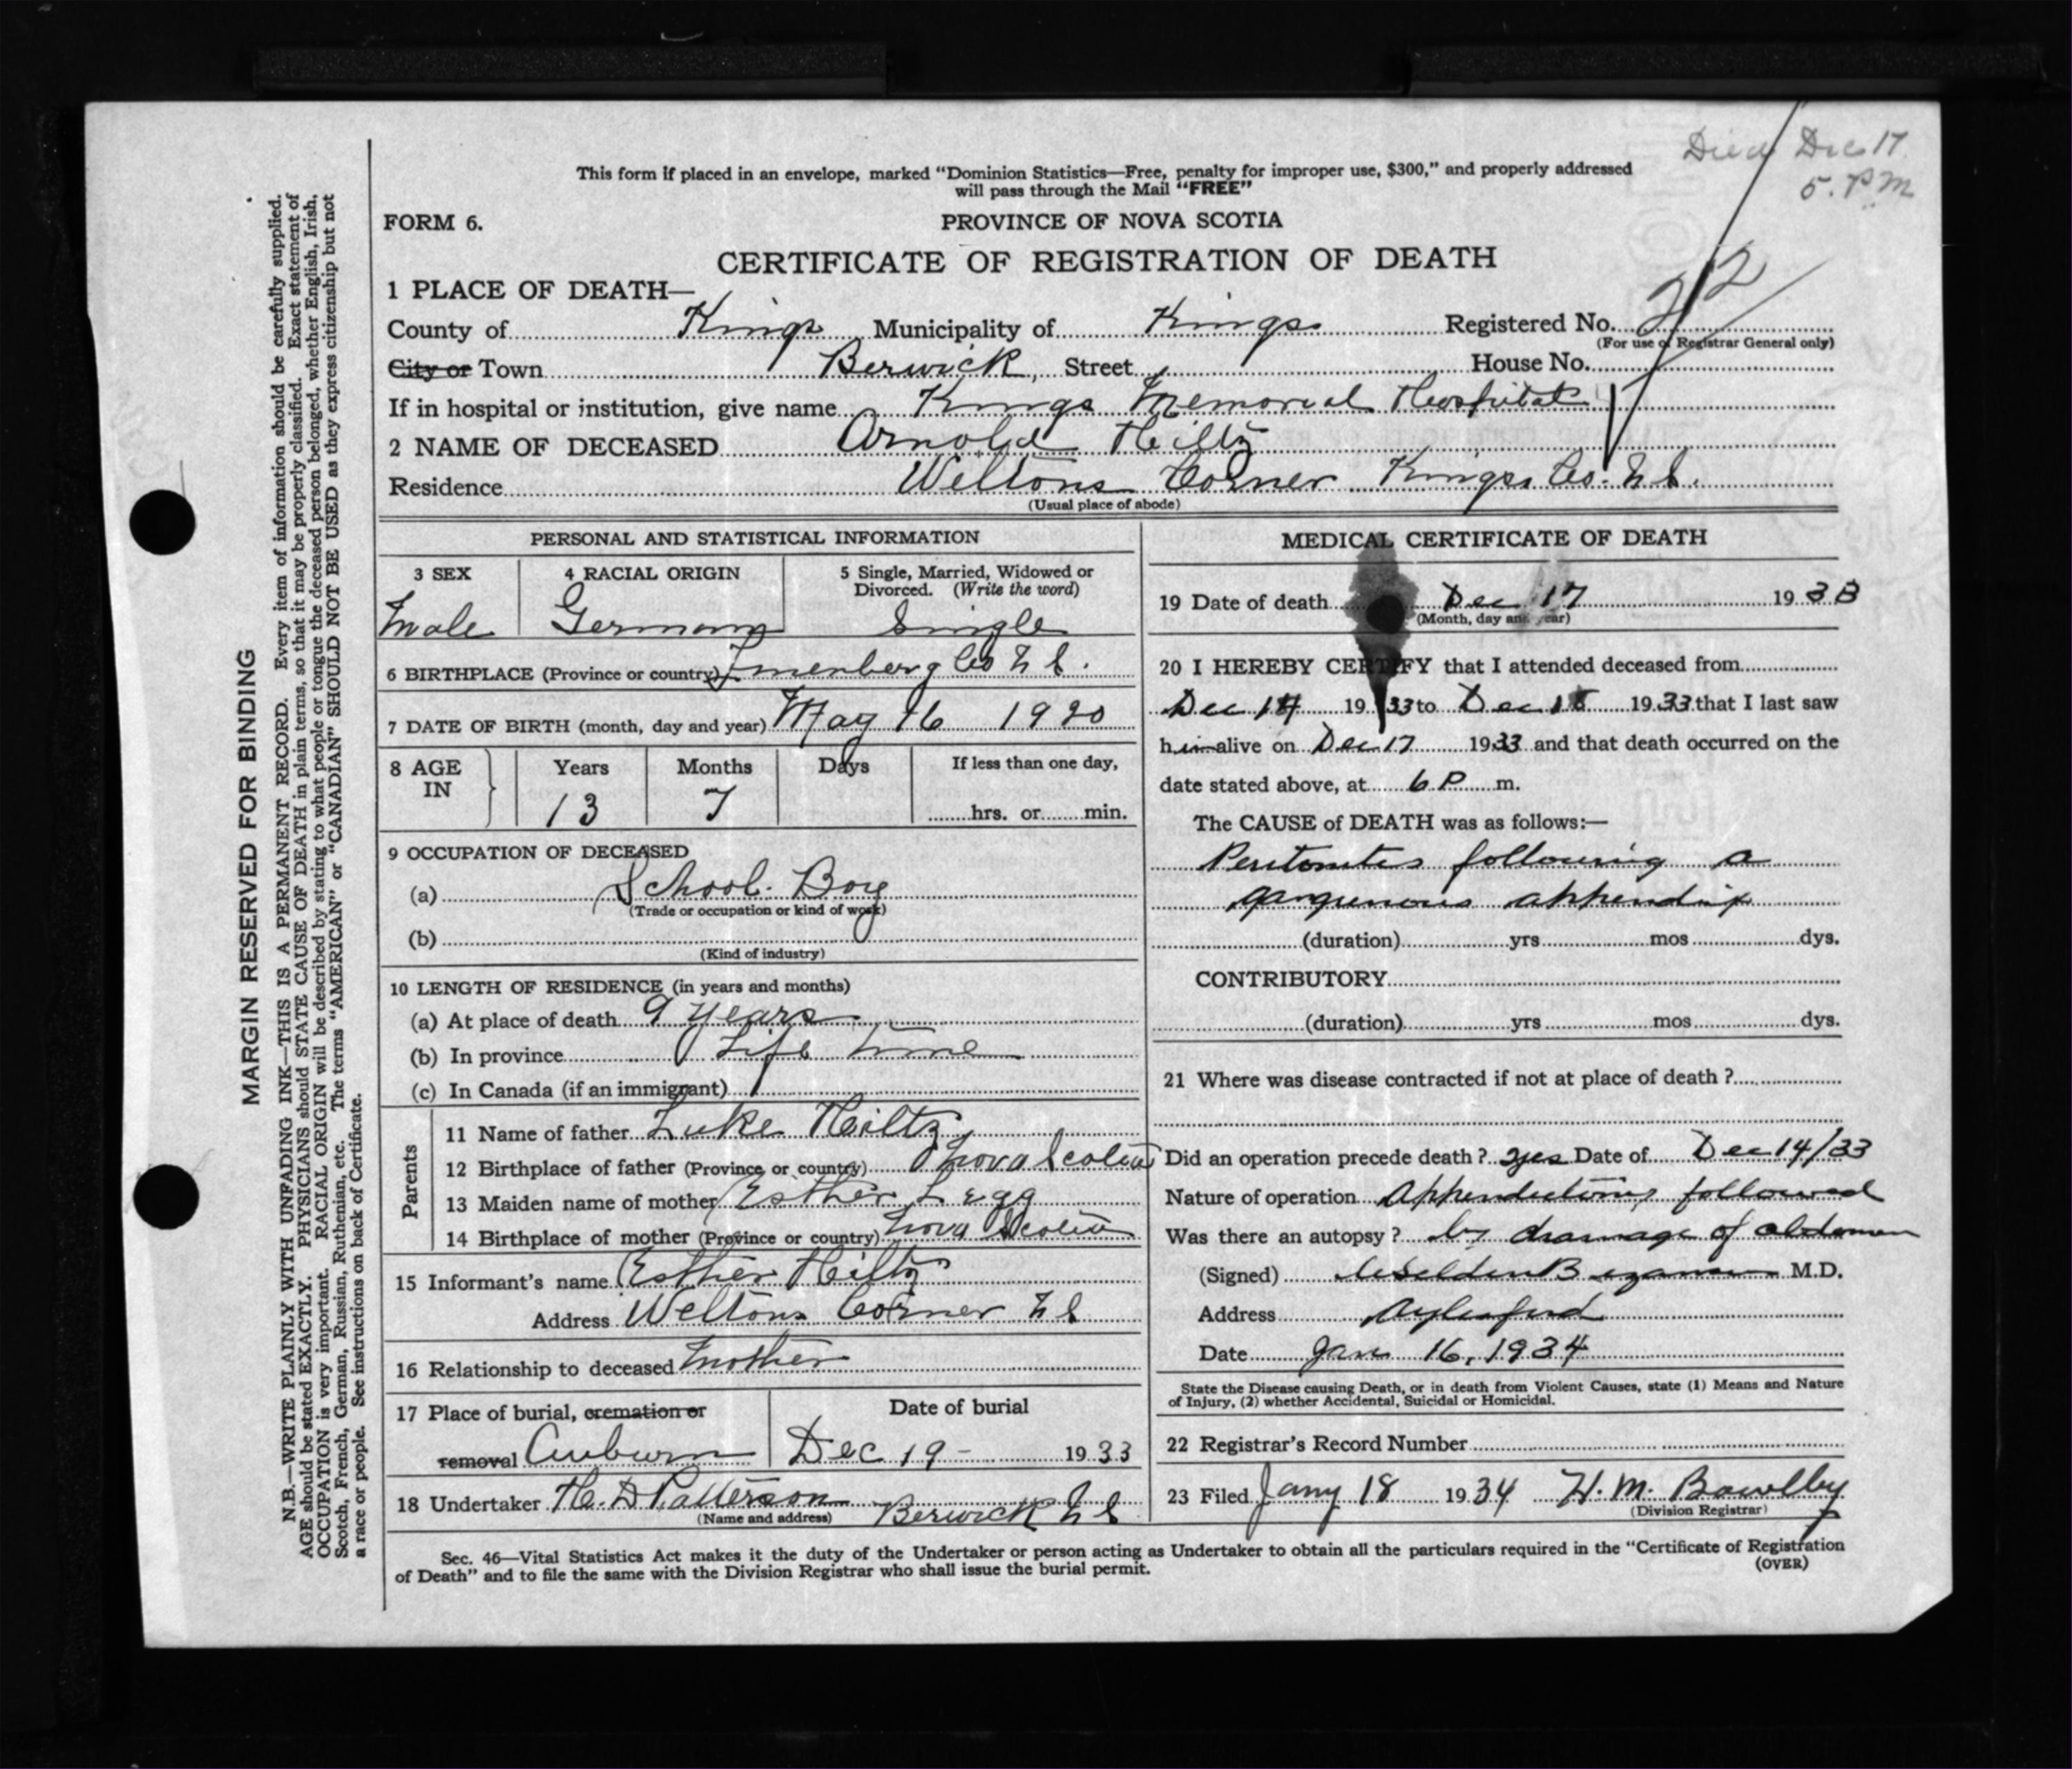 Died Dec 17
5. P M
This form if placed in an envelope, marked "Dominion Statistics—Free, penalty for improper use, $300," and properly addressed
will pass through the Mail "FREE"
FORM 6.
PROVINCE OF NOVA SCOTIA
CERTIFICATE OF REGISTRATION OF DEATH
1 PLACE OF DEATH—
County of Kings Municipality of Kings Registered No. 212
(For use of Registrar General only)
City or Town Berwick, Street House No.
If in hospital or institution, give name Kings Memorial Hospital
2 NAME OF DECEASED Arnold Hiltz
Residence Weltons Corner Kings Co. N S.
(Usual place of abode)
PERSONAL AND STATISTICAL INFORMATION
3 SEX
Male
4 RACIAL ORIGIN
German
5 Single, Married, Widowed or
Divorced. (Write the word)
Single
6 BIRTHPLACE (Province or country) Lunenberg Co N S.
7 DATE OF BIRTH (month, day and year) May 16 1920
8 AGE IN
Years Months Days If less than one day,
13 7 hrs. or min.
9 OCCUPATION OF DECEASED
(a) School. Boy
(Trade or occupation or kind of work)
(b)
(Kind of industry)
10 LENGTH OF RESIDENCE (in years and months)
(a) At place of death 9 years
(b) In province Life time
(c) In Canada (if an immigrant)
Parents
11 Name of father Luke Hiltz
12 Birthplace of father (Province or country) Nova Scotia
13 Maiden name of mother Esther Legg
14 Birthplace of mother (Province or country) Nova Scotia
15 Informant's name Esther Hiltz
Address Weltons Corner N S
16 Relationship to deceased Mother
17 Place of burial, cremation or
removal Auburn
Date of burial
Dec 19- 1933
18 Undertaker H. D Patterson Berwick N S
(Name and address)
MEDICAL CERTIFICATE OF DEATH
19 Date of death Dec 17 1933
(Month, day and year)
20 I HEREBY CERTIFY that I attended deceased from
Dec 14 1933 to Dec 18 1933 that I last saw
him alive on Dec 17 1933 and that death occurred on the
date stated above, at 6 P m.
The CAUSE of DEATH was as follows:—
Peritonites following a
gangrenous appendix
(duration) yrs mos dys.
CONTRIBUTORY
(duration) yrs mos dys.
21 Where was disease contracted if not at place of death?
Did an operation precede death? yes Date of Dec 14/33
Nature of operation Appendectomy followed
Was there an autopsy? by drainage of abdomen
(Signed) M.D.
Address Aylesford
Date Jan 16, 1934
State the Disease causing Death, or in death from Violent Causes, state (1) Means and Nature
of Injury, (2) whether Accidental, Suicidal or Homicidal.
22 Registrar's Record Number
23 Filed Jany 18 1934 H. M. Bowlby
(Division Registrar)
Sec. 46—Vital Statistics Act makes it the duty of the Undertaker or person acting as Undertaker to obtain all the particulars required in the "Certificate of Registration
of Death" and to file the same with the Division Registrar who shall issue the burial permit.
(OVER)
MARGIN RESERVED FOR BINDING
N.B.—WRITE PLAINLY WITH UNFADING INK—THIS IS A PERMANENT RECORD. Every item of information should be carefully supplied.
AGE should be stated EXACTLY. PHYSICIANS should STATE CAUSE OF DEATH in plain terms, so that it may be properly classified. Exact statement of
OCCUPATION is very important. RACIAL ORIGIN will be described by stating to what people or tongue the deceased person belonged, whether English, Irish,
Scotch, French, German, Russian, Ruthenian, etc. The terms "AMERICAN" or "CANADIAN" SHOULD NOT BE USED as they express citizenship but not
a race or people. See instructions on back of Certificate.